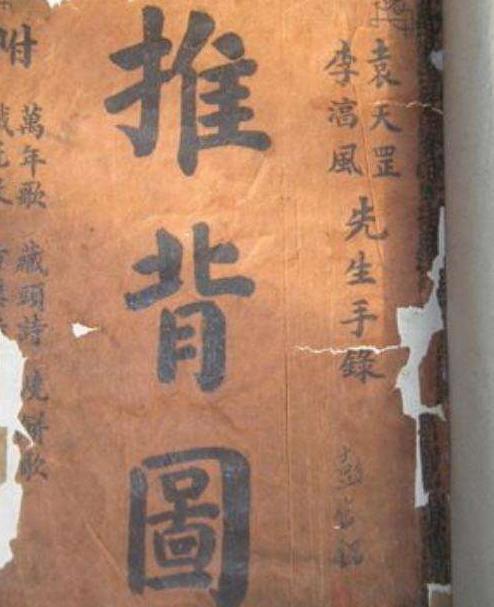 袁天罡
李淳風
先生手錄
推背圖
萬年歌 藏頭詩 燒餅歌